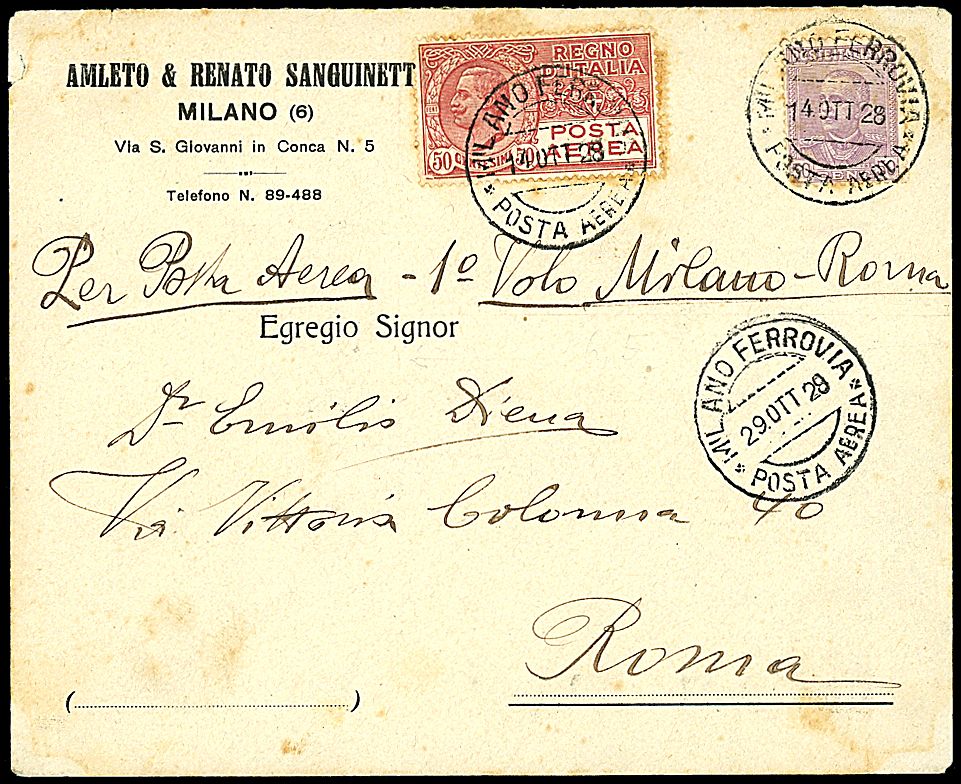 AMLETO & RENATO SANGUINETT
MILANO (6)
Via S. Giovanni in Conca N. 5
Telefono N. 89-488
REGNO
D'ITALIA
POSTA
AEREA
50
MILANO FERROVIA
14 OTT 28
* POSTA AEREA *
MILANO FERROVIA
14 OTT 28
* POSTA AEREA *
Per Posta Aerea - 1º Volo Milano-Roma
Egregio Signor
MILANO FERROVIA
29.OTT 28
* POSTA AEREA *
Dr Emilio Diena
Via Vittoria Colonna 40
Roma
(
)